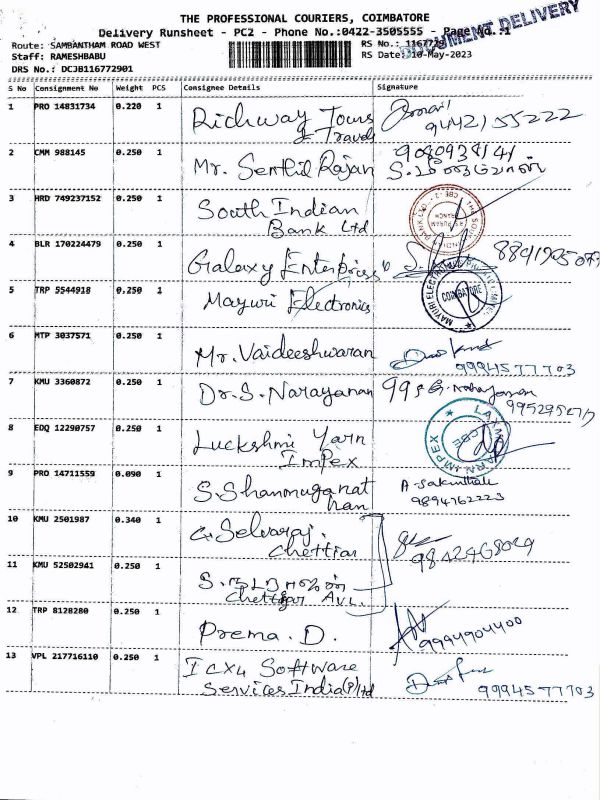 THE PROFESSIONAL COURIERS, COIMBATORE
Delivery Runsheet - PC2 - Phone No.:0422-3505555 - Page No.:1
DOCUMENT DELIVERY
Route: SAMBANTHAM ROAD WEST
RS No.:
Staff: RAMESHBABU
RS Date: 10-May-2023
DRS No.: DCJB116772901
S No Consignment No Weight PCS Consignee Details Signature
1 PRO 14831734 0.220 1 Richway Tours
& Travels
9442155222
2 CMM 988145 0.250 1 Mr. Senthil Rajan
3 HRD 749237152 0.250 1 South Indian
Bank Ltd
4 BLR 170224479 0.250 1 Galaxy Enterprises
5 TRP 5544918 0.250 1 Mayuri Electronics
COIMBATORE
6 MTP 3037571 0.250 1 Mr. Vaideeshwaran
9994577703
7 KMU 3360872 0.250 1 Dr. S. Narayanan
8 EDQ 12290757 0.250 1 Luckshmi Yarn
Impex
9 PRO 14711559 0.090 1 S. Shanmuganat
han
9894762223
10 KMU 2501987 0.340 1 G. Selvaraj.
Chettiar
11 KMU 52502941 0.250 1
Chettiar A.V.L.
12 TRP 8128280 0.250 1 Prema. D.
9994904400
13 VPL 217716110 0.250 1 Icx4 Software
Services India (P) ltd
9994577703